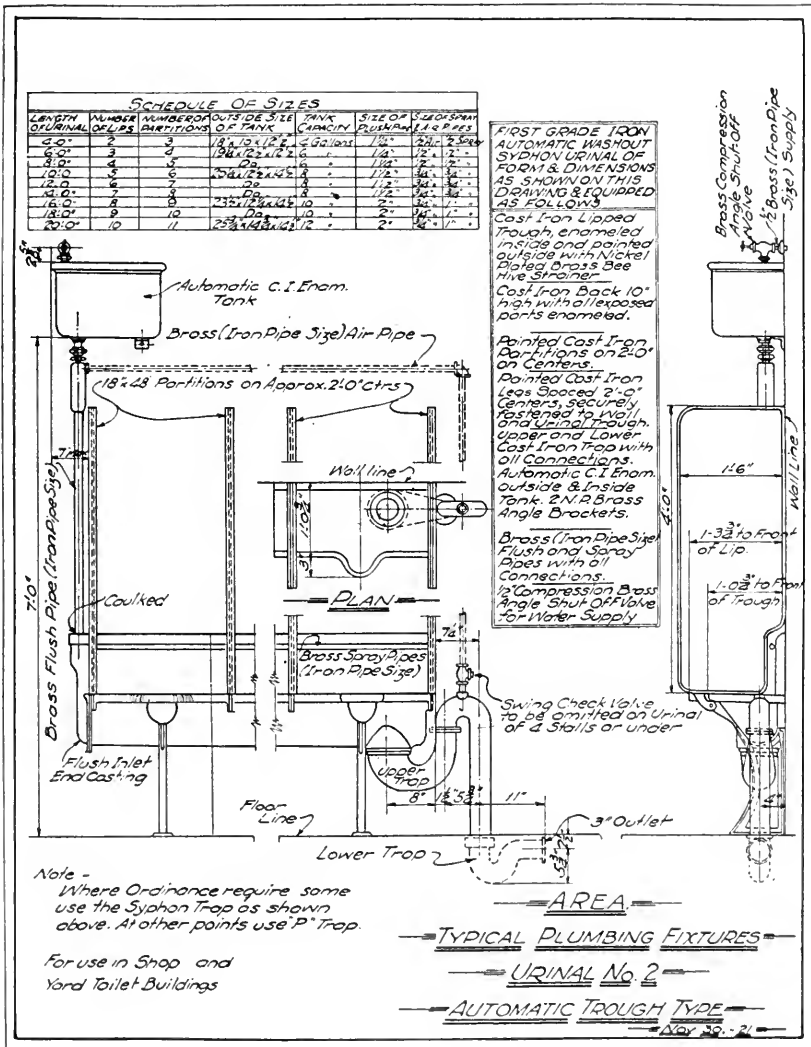 SCHEDULE OF SIZES
LENGTH OF URINAL NUMBER OF LIPS NUMBER OF PARTITIONS OUTSIDE SIZE OF TANK TANK CAPACITY SIZE OF FLUSH PIPE SIZE OF SPRAY & AIR PIPES
4'-0" 2 3 4 Gallons 1¼" ½ Air ½ Spray
6'-0" 3 4 6 " 1¼" ½" ½"
8'-0" 4 5 Do 6 " 1¼"
10'-0 5 6 8 " 1½" ¾" ¾"
12-0 6 7 Do 8 " 1½" ¾" ¾"
14'-0" 7 8 Do 8 " 1½" ¾" ¾"
16'-0" 8 9 10 " 2" ¾" 1"
18'-0" 9 10 Do 10 " 2" ¾" 1"
20'-0" 10 11 12 " 2" 1"
FIRST GRADE IRON
AUTOMATIC WASHOUT
SYPHON URINAL OF
FORM & DIMENSIONS
AS SHOWN ON THIS
DRAWING & EQUIPPED
AS FOLLOWS
Cast Iron Lipped
Trough, enameled
inside and painted
outside with Nickel
Plated Brass Bee
Hive Strainer
Cast Iron Back 10"
high with all exposed
parts enameled.
Painted Cast Iron
Partitions on 2'-0"
on Centers.
Painted Cast Iron
Legs Spaced 2'-0"
Centers, securely
fastened to Wall
and Urinal Trough.
Upper and Lower
Cast Iron Trap with
all Connections.
Automatic C.I. Enam.
outside & Inside
Tank. 2 N.P. Brass
Angle Brackets.
Brass (Iron Pipe Size)
Flush and Spray
Pipes with all
Connections.
½" Compression Brass
Angle Shut Off Valve
for Water Supply
Brass Compression
Angle Shut Off
Valve
½" Brass (Iron Pipe
Size) Supply
Automatic C.I. Enam.
Tank
Brass (Iron Pipe Size) Air Pipe
18"x48" Partitions on Approx. 2'-0" ctrs
Wall line
1'-0¾"
3"
PLAN
7'-0"
Brass Flush Pipe (Iron Pipe Size)
Caulked
Brass Spray Pipes
(Iron Pipe Size)
7¼"
Swing Check Valve
to be omitted on Urinal
of 4 Stalls or under
Flush Inlet
End Casting
Upper
Trap
8"
11"
Floor
Line
3" Outlet
Lower Trap
4'-0"
1'-6"
Wall Line
1-3¾" to Front
of Lip.
1-0¾" to Front
of Trough
4"
Note -
Where Ordinance require same
use the Syphon Trap as shown
above. At other points use "P" Trap.
For use in Shop and
Yard Toilet Buildings
AREA
TYPICAL PLUMBING FIXTURES
URINAL No. 2
AUTOMATIC TROUGH TYPE
Nov 30.-21